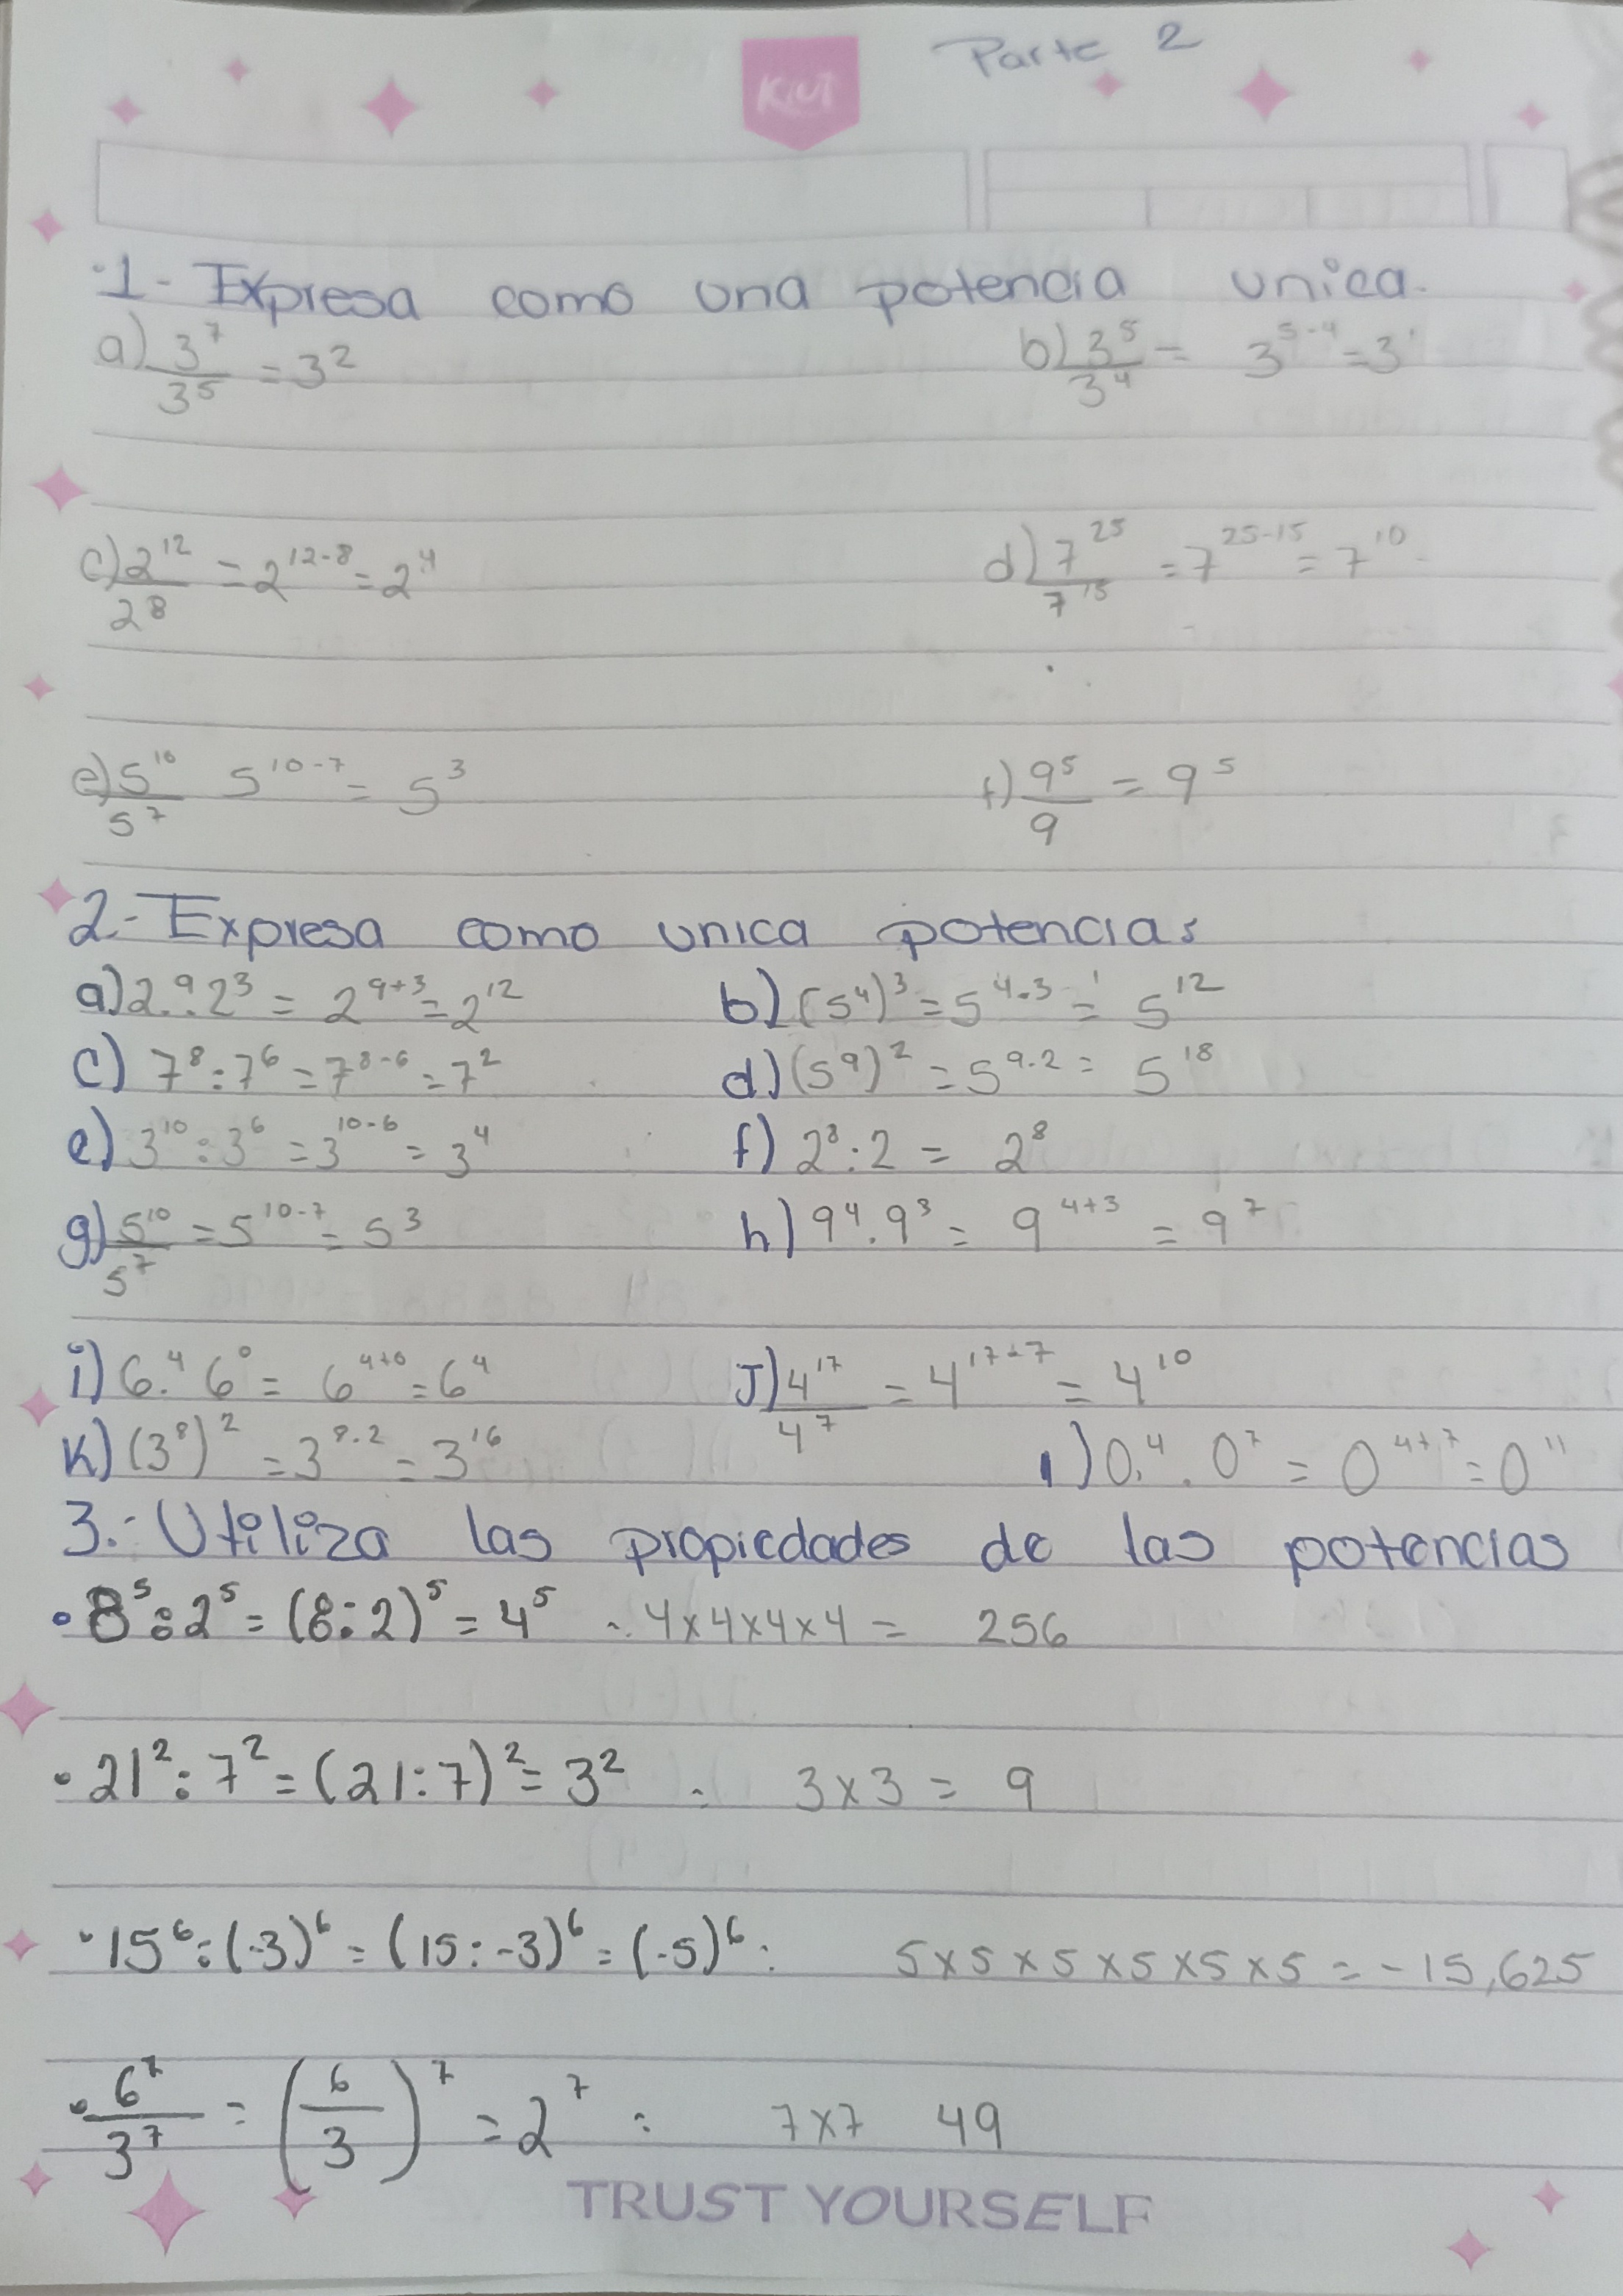 Parte 2
KIUT
·1- Expresa como una potencia unica.
a) 3⁷/3⁵ = 3² b) 3⁵/3⁴ = 3⁵⁻⁴ = 3¹
c) 2¹²/2⁸ = 2¹²⁻⁸ = 2⁴ d) 7²⁵/7¹⁵ = 7²⁵⁻¹⁵ = 7¹⁰
e) 5¹⁰/5⁷ 5¹⁰⁻⁷ = 5³ f) 9⁵/9 = 9⁵
2.- Expresa como unica potencias
a) 2.⁹ . 2³ = 2⁹⁺³ = 2¹² b) (5⁴)³ = 5⁴·³ = 5¹²
c) 7⁸ : 7⁶ = 7⁸⁻⁶ = 7² d) (5⁹)² = 5⁹·² = 5¹⁸
e) 3¹⁰ : 3⁶ = 3¹⁰⁻⁶ = 3⁴ f) 2⁸ : 2 = 2⁸
g) 5¹⁰/5⁷ = 5¹⁰⁻⁷ = 5³ h) 9⁴ . 9³ = 9⁴⁺³ = 9⁷
i) 6.⁴ 6⁰ = 6⁴⁺⁰ = 6⁴ J) 4¹⁷/4⁷ = 4¹⁷⁻⁷ = 4¹⁰
K) (3⁸)² = 3⁸·² = 3¹⁶ l) 0.⁴ . 0⁷ = 0⁴⁺⁷ = 0¹¹
3.- Utiliza las propiedades de las potencias
· 8⁵ : 2⁵ = (8 : 2)⁵ = 4⁵ : 4x4x4x4 = 256
· 21² : 7² = (21 : 7)² = 3² : 3x3 = 9
· 15⁶ : (-3)⁶ = (15 : -3)⁶ = (-5)⁶ : 5x5x5x5x5x5 = -15,625
· 6⁷/3⁷ = (6/3)⁷ = 2⁷ : 7x7 49
TRUST YOURSELF